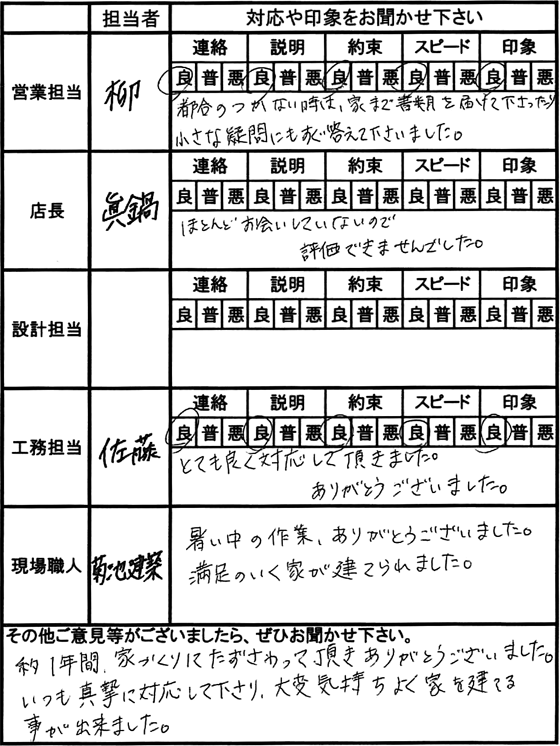 担当者 対応や印象をお聞かせ下さい
営業担当 柳 連絡 説明 約束 スピード 印象
良 普 悪 良 普 悪 良 普 悪 良 普 悪 良 普 悪
都合のつかない時は、家まで書類を届けて下さったり
小さな疑問にもすぐ答えて下さいました。
店長 眞鍋 連絡 説明 約束 スピード 印象
良 普 悪 良 普 悪 良 普 悪 良 普 悪 良 普 悪
ほとんどお会いしていないので
評価できませんでした。
設計担当 連絡 説明 約束 スピード 印象
良 普 悪 良 普 悪 良 普 悪 良 普 悪 良 普 悪
工務担当 佐藤 連絡 説明 約束 スピード 印象
良 普 悪 良 普 悪 良 普 悪 良 普 悪 良 普 悪
とても良く対応して頂きました。
ありがとうございました。
現場職人 菊池建築 暑い中の作業、ありがとうございました。
満足のいく家が建てられました。
その他ご意見等がございましたら、ぜひお聞かせ下さい。
約1年間、家づくりにたずさわって頂きありがとうございました。
いつも真摯に対応して下さり、大変気持ちよく家を建てる
事が出来ました。